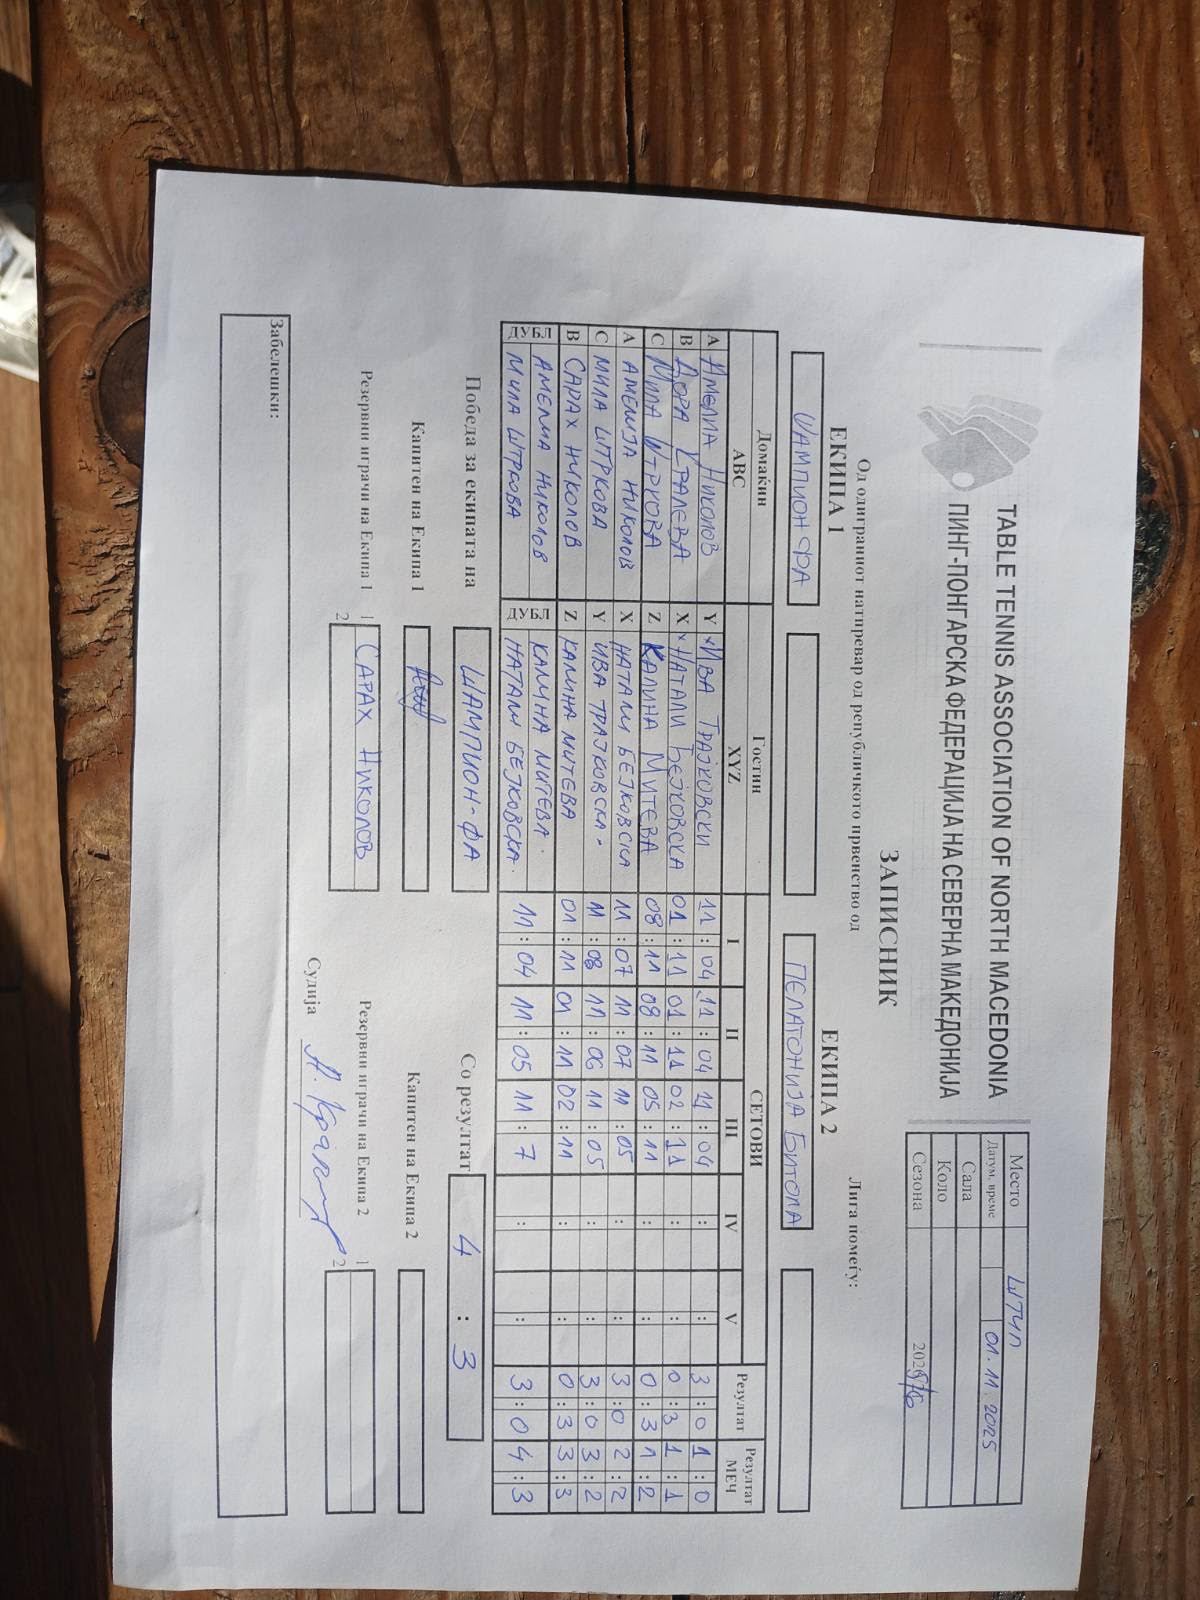 TABLE TENNIS ASSOCIATION OF NORTH MACEDONIA
ПИНГ-ПОНГАРСКА ФЕДЕРАЦИЈА НА СЕВЕРНА МАКЕДОНИЈА
Место ШТИП
Датум, време 01.11.2025
Сала
Коло
Сезона 2025/26
ЗАПИСНИК
Од одиграниот натпревар од републичкото првенство од Лига помеѓу:
ЕКИПА 1 ЕКИПА 2
ШАМПИОН ФА ПЕЛАГОНИЈА БИТОЛА
Домаќин Гостин СЕТОВИ Резултат Резултат
ABC XYZ I II III IV V МЕЧ
A АМЕЛИА НИКОЛОВ Y ИВА ТРАЈКОВСКИ 11 : 04 11 : 04 11 : 04 : : 3 : 0 1 : 0
B ДОРА КРАЛЕВА X НАТАЛИ БЕЈКОВСКА 01 : 11 01 : 11 02 : 11 : : 0 : 3 1 : 1
C МИЛА ШТРКОВА Z КАЛИНА МИТЕВА 08 : 11 08 : 11 05 : 11 : : 0 : 3 1 : 2
A АМЕЛИЈА НИКОЛОВ X НАТАЛИ БЕЈКОВСКА 11 : 07 11 : 07 11 : 05 : : 3 : 0 2 : 2
C МИЛА ШТРКОВА Y ИВА ТРАЈКОВСКА 11 : 08 11 : 06 11 : 05 : : 3 : 0 3 : 2
B САРАХ НИКОЛОВ Z КАЛИНА МИТЕВА 01 : 11 01 : 11 02 : 11 : : 0 : 3 3 : 3
ДУБЛ АМЕЛИА НИКОЛОВ ДУБЛ КАЛИНА МИТЕВА 11 : 04 11 : 05 11 : 7 : : 3 : 0 4 : 3
МИЛА ШТРКОВА НАТАЛИ БЕЈКОВСКА
Победа за екипата на ШАМПИОН-ФА Со резултат 4 : 3
Капитен на Екипа 1 Капитен на Екипа 2
Резервни играчи на Екипа 1 1 САРАХ НИКОЛОВ Резервни играчи на Екипа 2 1
2 2
Судија
Забелешки: